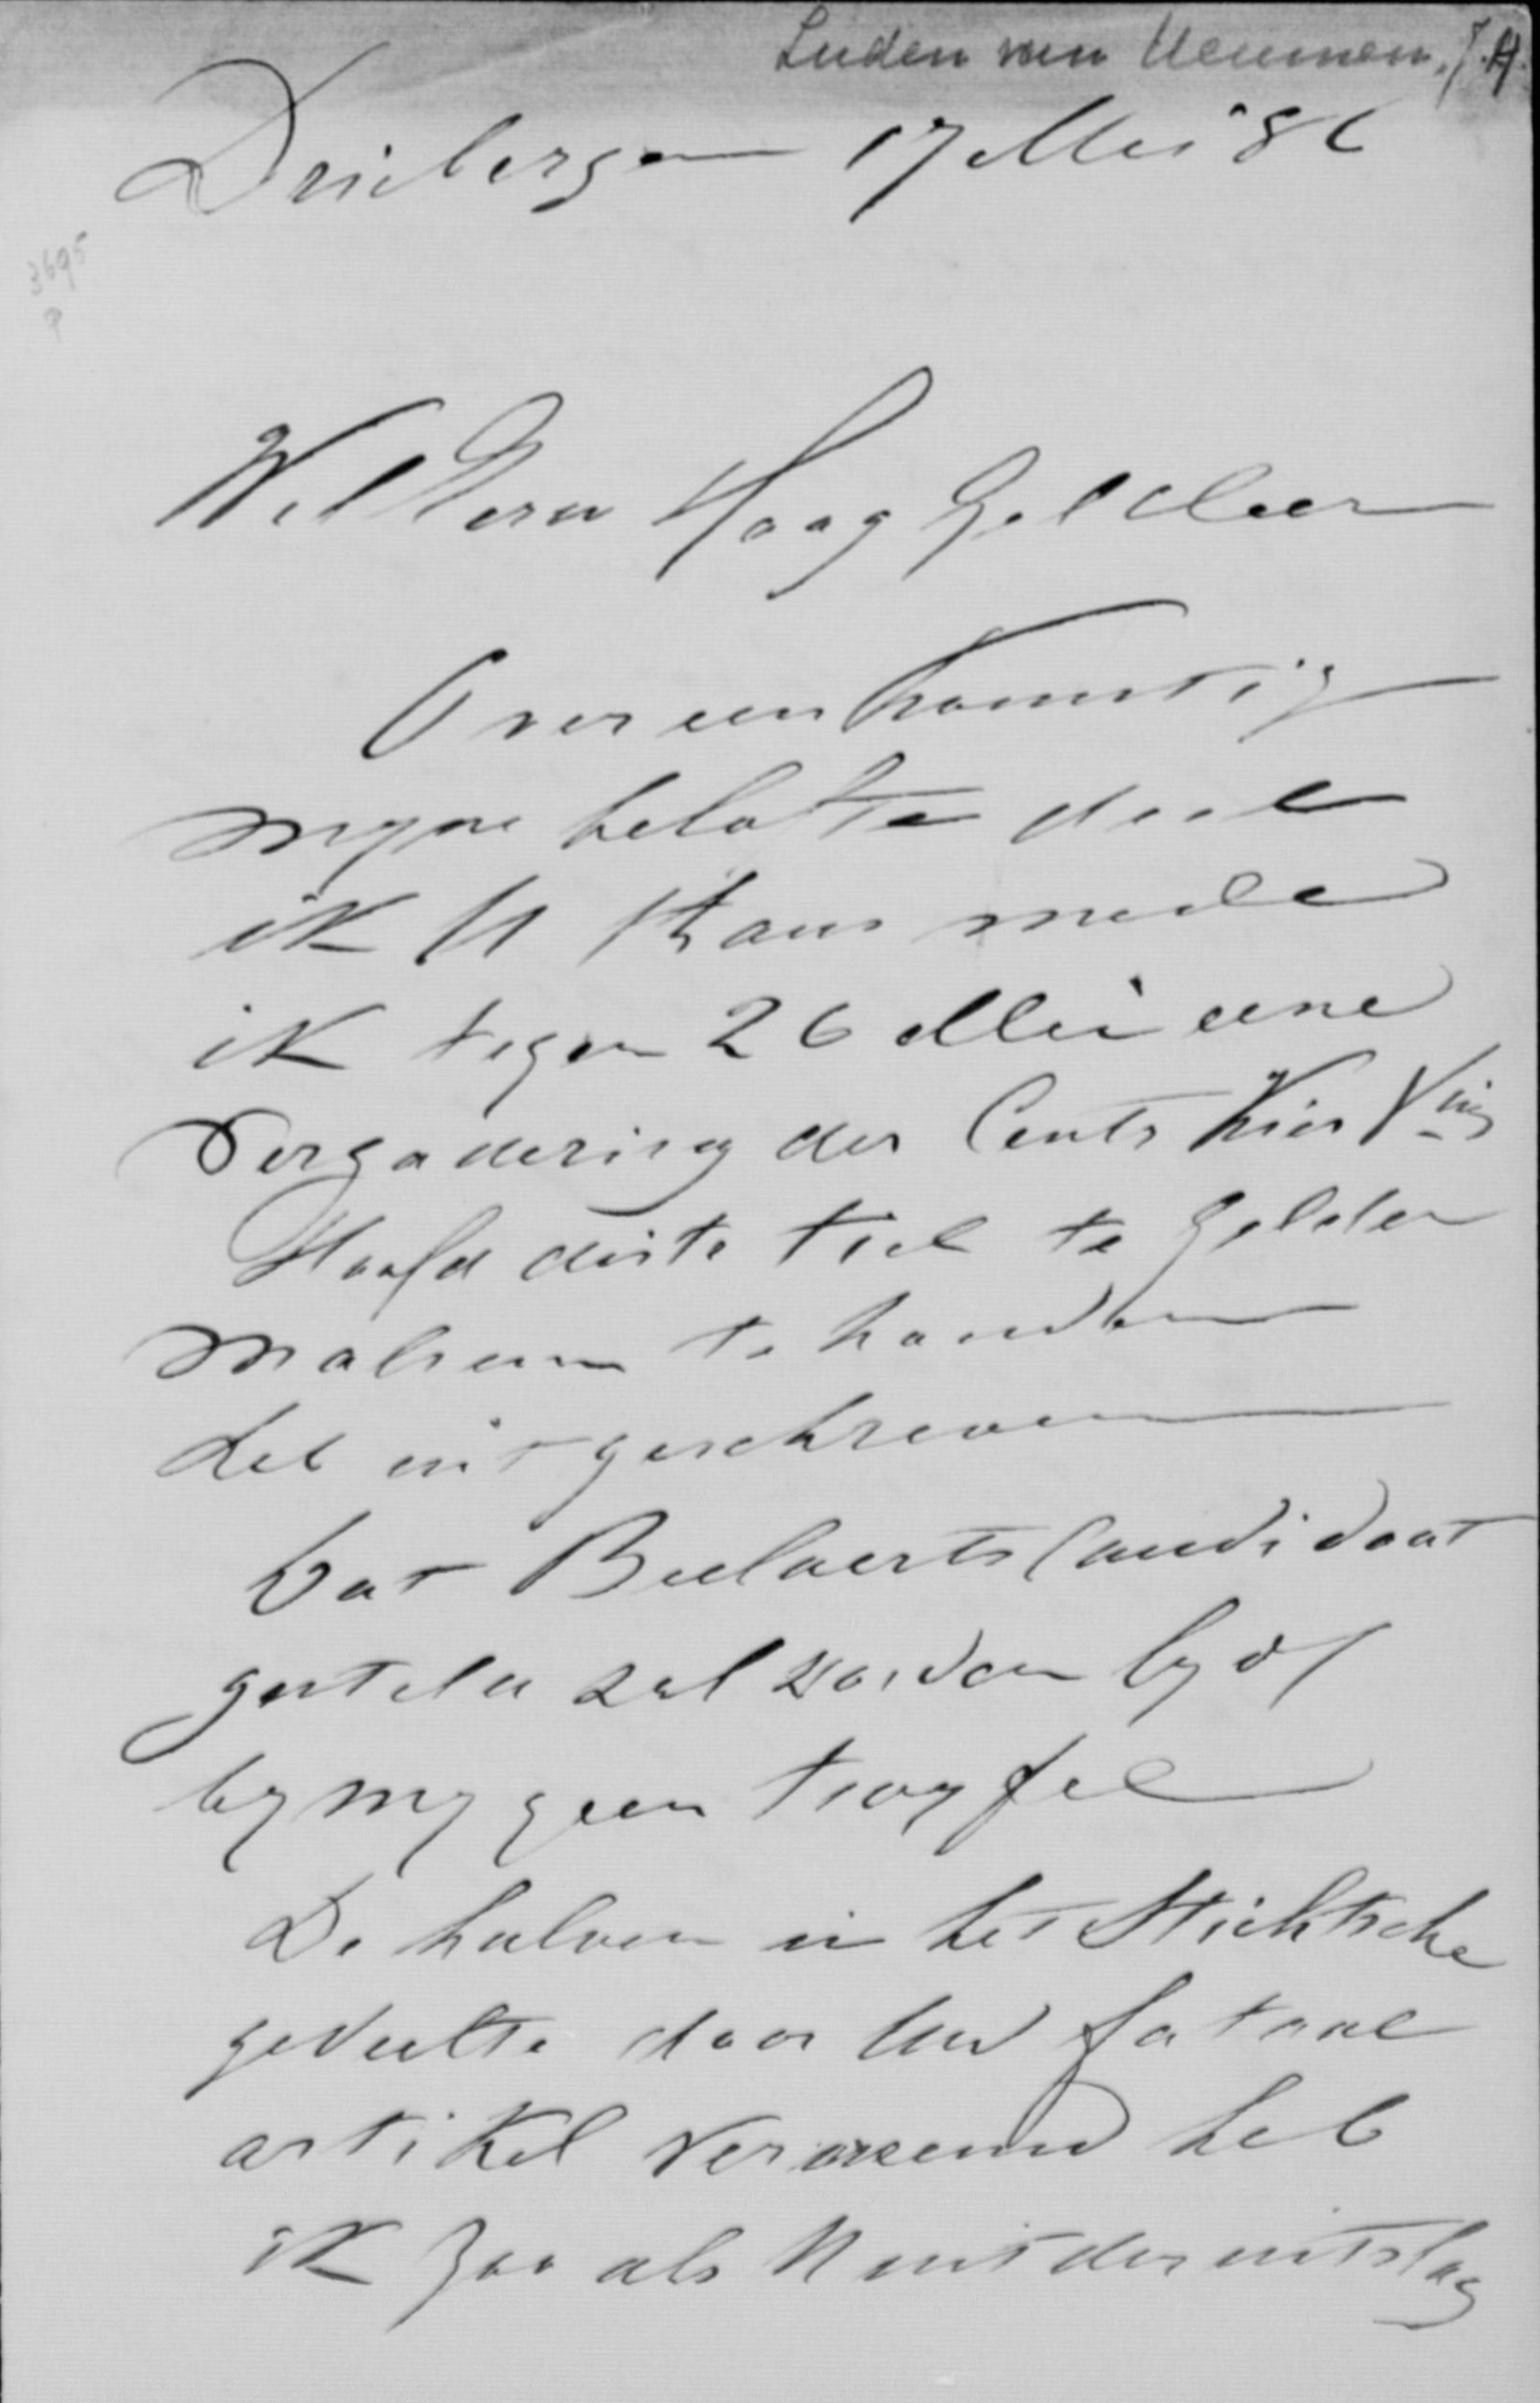 Luden van Heumen, J.H.
Driebergen 17 Mei '86
3695
P
Wel Eerw Hoog Gel Heer
Overeenkomstig
myne belofte deel
ik U thans mede
ik tegen 26 Mei eene
Vergadering der Centr Kies Vng
Hoofd distr Tiel te Gelder
malsen te houden
heb uitgeschreven
Dat Beelaerts Candidaat
gesteld zal worden lydt
by my geen twyfel
De halven in het Stichtsche
gedeelte door Uw fataal
artikel verwarend heb
ik zoo als U uit den uitslag